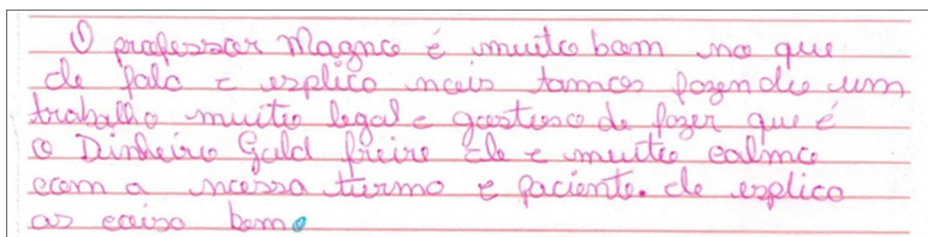 O professor Magno é muito bom no que
ele fala e esplica nois tamos fazendo um
trabalho muito legal e gostoso de fazer que é
o Dinheiro Gald freire Ele e muito calmo
com a nossa turma e paciente. ele esplica
as coisa bem.